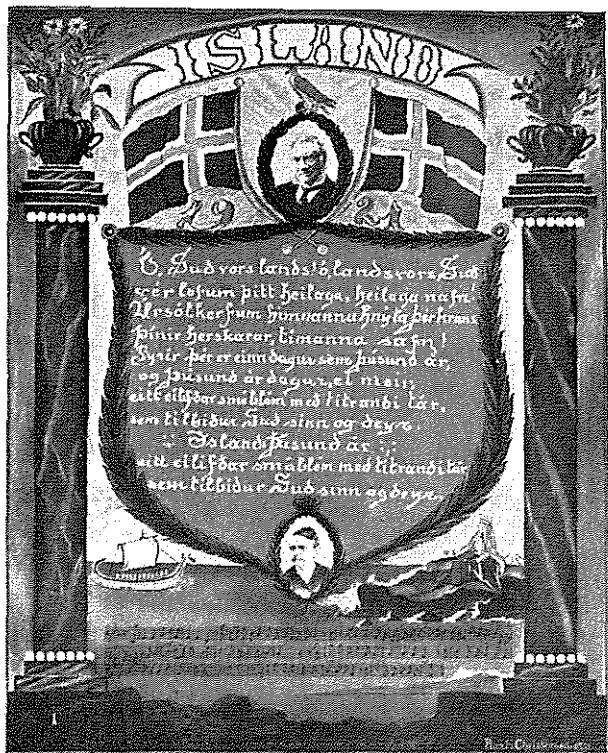 ISLAND
Ó, Guð vors lands! ó, lands vors Guð
vér lofum þitt heilaga, heilaga nafn!
Úr sólkerfum himnanna hnýta þér krans
þínir herskarar, tímanna safn!
Fyrir þér er einn dagur sem þúsund ár,
og þúsund ár dagur, ei meir;
eitt eilífðar smáblóm með titrandi tár,
sem tilbiður Guð sinn og deyr.
Íslands þúsund ár
eitt eilífðar smáblóm með titrandi tár
sem tilbiður Guð sinn og deyr.